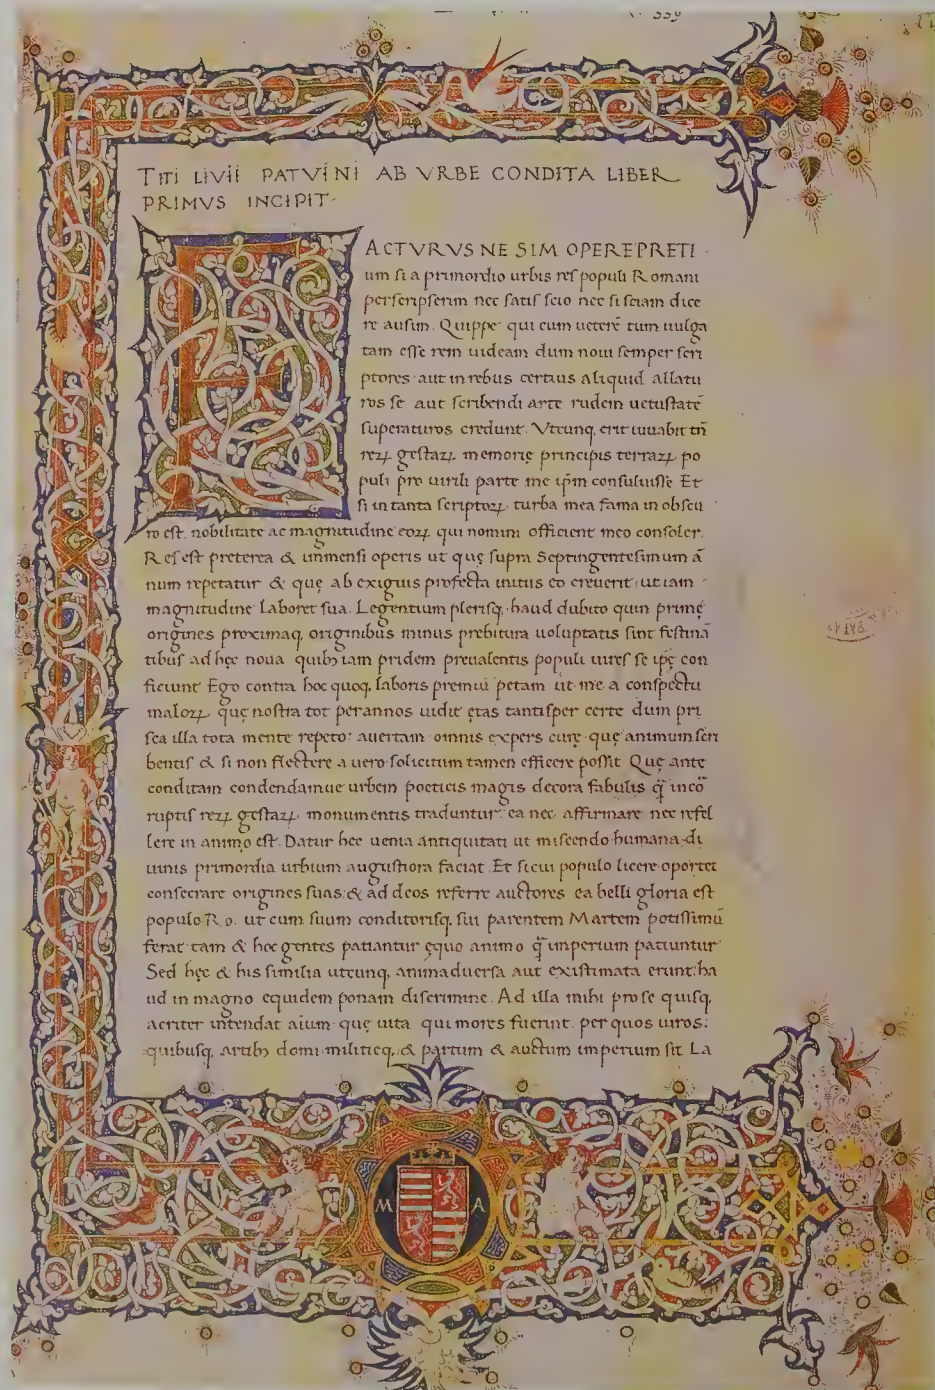 339
TITI LIVII PATVINI AB VRBE CONDITA LIBER
PRIMVS INCIPIT·
FACTVRVS NE SIM OPERE PRETI·
um si a primordio urbis res populi Romani
perscripserim nec satis scio nec si sciam dice
re ausim. Quippe qui cum ueterē tum uulga
tam esse rem uideam dum noui semper scri
ptores aut in rebus certius aliquid allatu
ros se aut scribendi arte rudem uetustatē
superaturos credunt. Vtcunq, erit iuuabit tn̄
reꝝ gestaꝝ memorię principis terraꝝ po
puli pro uirili parte me ip̄m consuluisse Et
si in tanta scriptoꝝ turba mea fama in obscu
ro est. nobilitate ac magnitudine eoꝝ qui nomini officient meo consoler.
Res est preterea & immensi operis ut quę supra Septingentesimum ā
num repetatur & quę ab exiguis profecta initiis eo creuerit ut iam
magnitudine laboret sua. Legentium plerisq, haud dubito quin primę
origines proximaq, originibus minus prebitura uoluptatis sint festinā
tibus ad hęc noua quibꝫ iam pridem preualentis populi uires se ipsę con
ficiunt Ego contra hoc quoq, laboris premiū petam ut me a conspectu
maloꝝ quę nostra tot per annos uidit ętas tantisper certe dum pri
sca illa tota mente repeto: auertam omnis expers curę quę animum scri
bentis & si non flectere a uero solicitum tamen efficere possit Quę ante
conditam condendamue urbem poeticis magis decora fabulis q̄ incō
ruptis reꝝ gestaꝝ monumentis traduntur: ea nec affirmare nec refel
lere in animo est. Datur hec uenia antiquitati ut miscendo humana di
uinis primordia urbium augustiora faciat. Et si cui populo licere oportet
consecrare origines suas: & ad deos referre auctores ea belli gloria est
populo Ro. ut cum suum conditorisq, sui parentem Martem potissimū
ferat tam & hoc gentes patiantur ęquo animo q̄ imperium patiuntur
Sed hęc & his similia utcunq, animaduersa aut existimata erunt: ha
ud in magno equidem ponam discrimine. Ad illa mihi pro se quisq,
acriter intendat aium quę uita qui mores fuerint. per quos uiros:
quibusq, artibꝫ domi militięq, & partum & auctum imperium sit La
M A